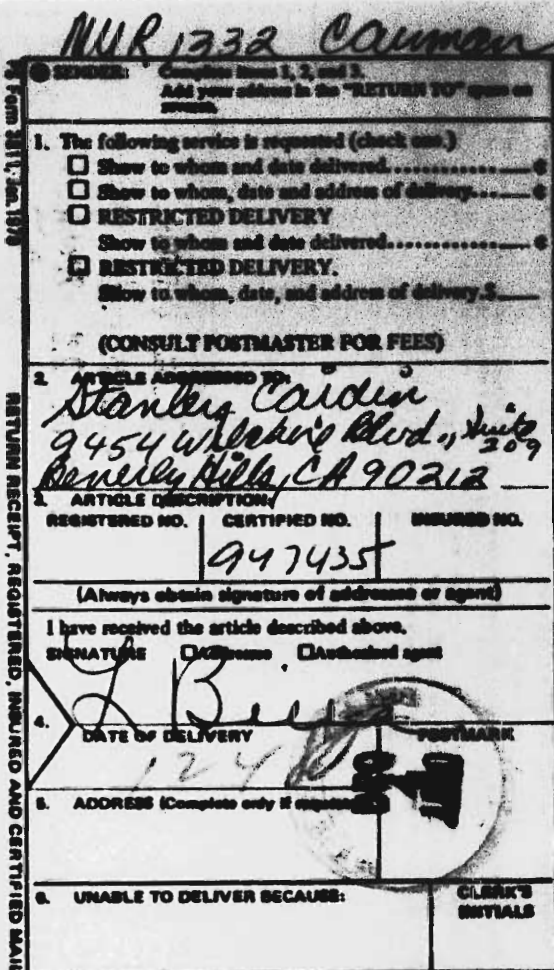 MUR 1332 Cauman
SENDER: Complete items 1, 2, and 3.
Add your address in the "RETURN TO" space on
reverse.
1. The following service is requested (check one.)
☐ Show to whom and date delivered............ ¢
☐ Show to whom, date and address of delivery.... ¢
☐ RESTRICTED DELIVERY
Show to whom and date delivered............ ¢
☐ RESTRICTED DELIVERY.
Show to whom, date, and address of delivery.$
(CONSULT POSTMASTER FOR FEES)
2. ARTICLE ADDRESSED TO:
Stanley Caidin
9454 Wilshire Blvd., Suite
209
Beverly Hills, CA 90212
3. ARTICLE DESCRIPTION:
REGISTERED NO. CERTIFIED NO. INSURED NO.
947435
(Always obtain signature of addressee or agent)
I have received the article described above.
SIGNATURE ☐Addressee ☐Authorized agent
4.
DATE OF DELIVERY POSTMARK
5. ADDRESS (Complete only if requested)
6. UNABLE TO DELIVER BECAUSE: CLERK'S
INITIALS
PS Form 3811, Jan. 1978
RETURN RECEIPT, REGISTERED, INSURED AND CERTIFIED MAIL